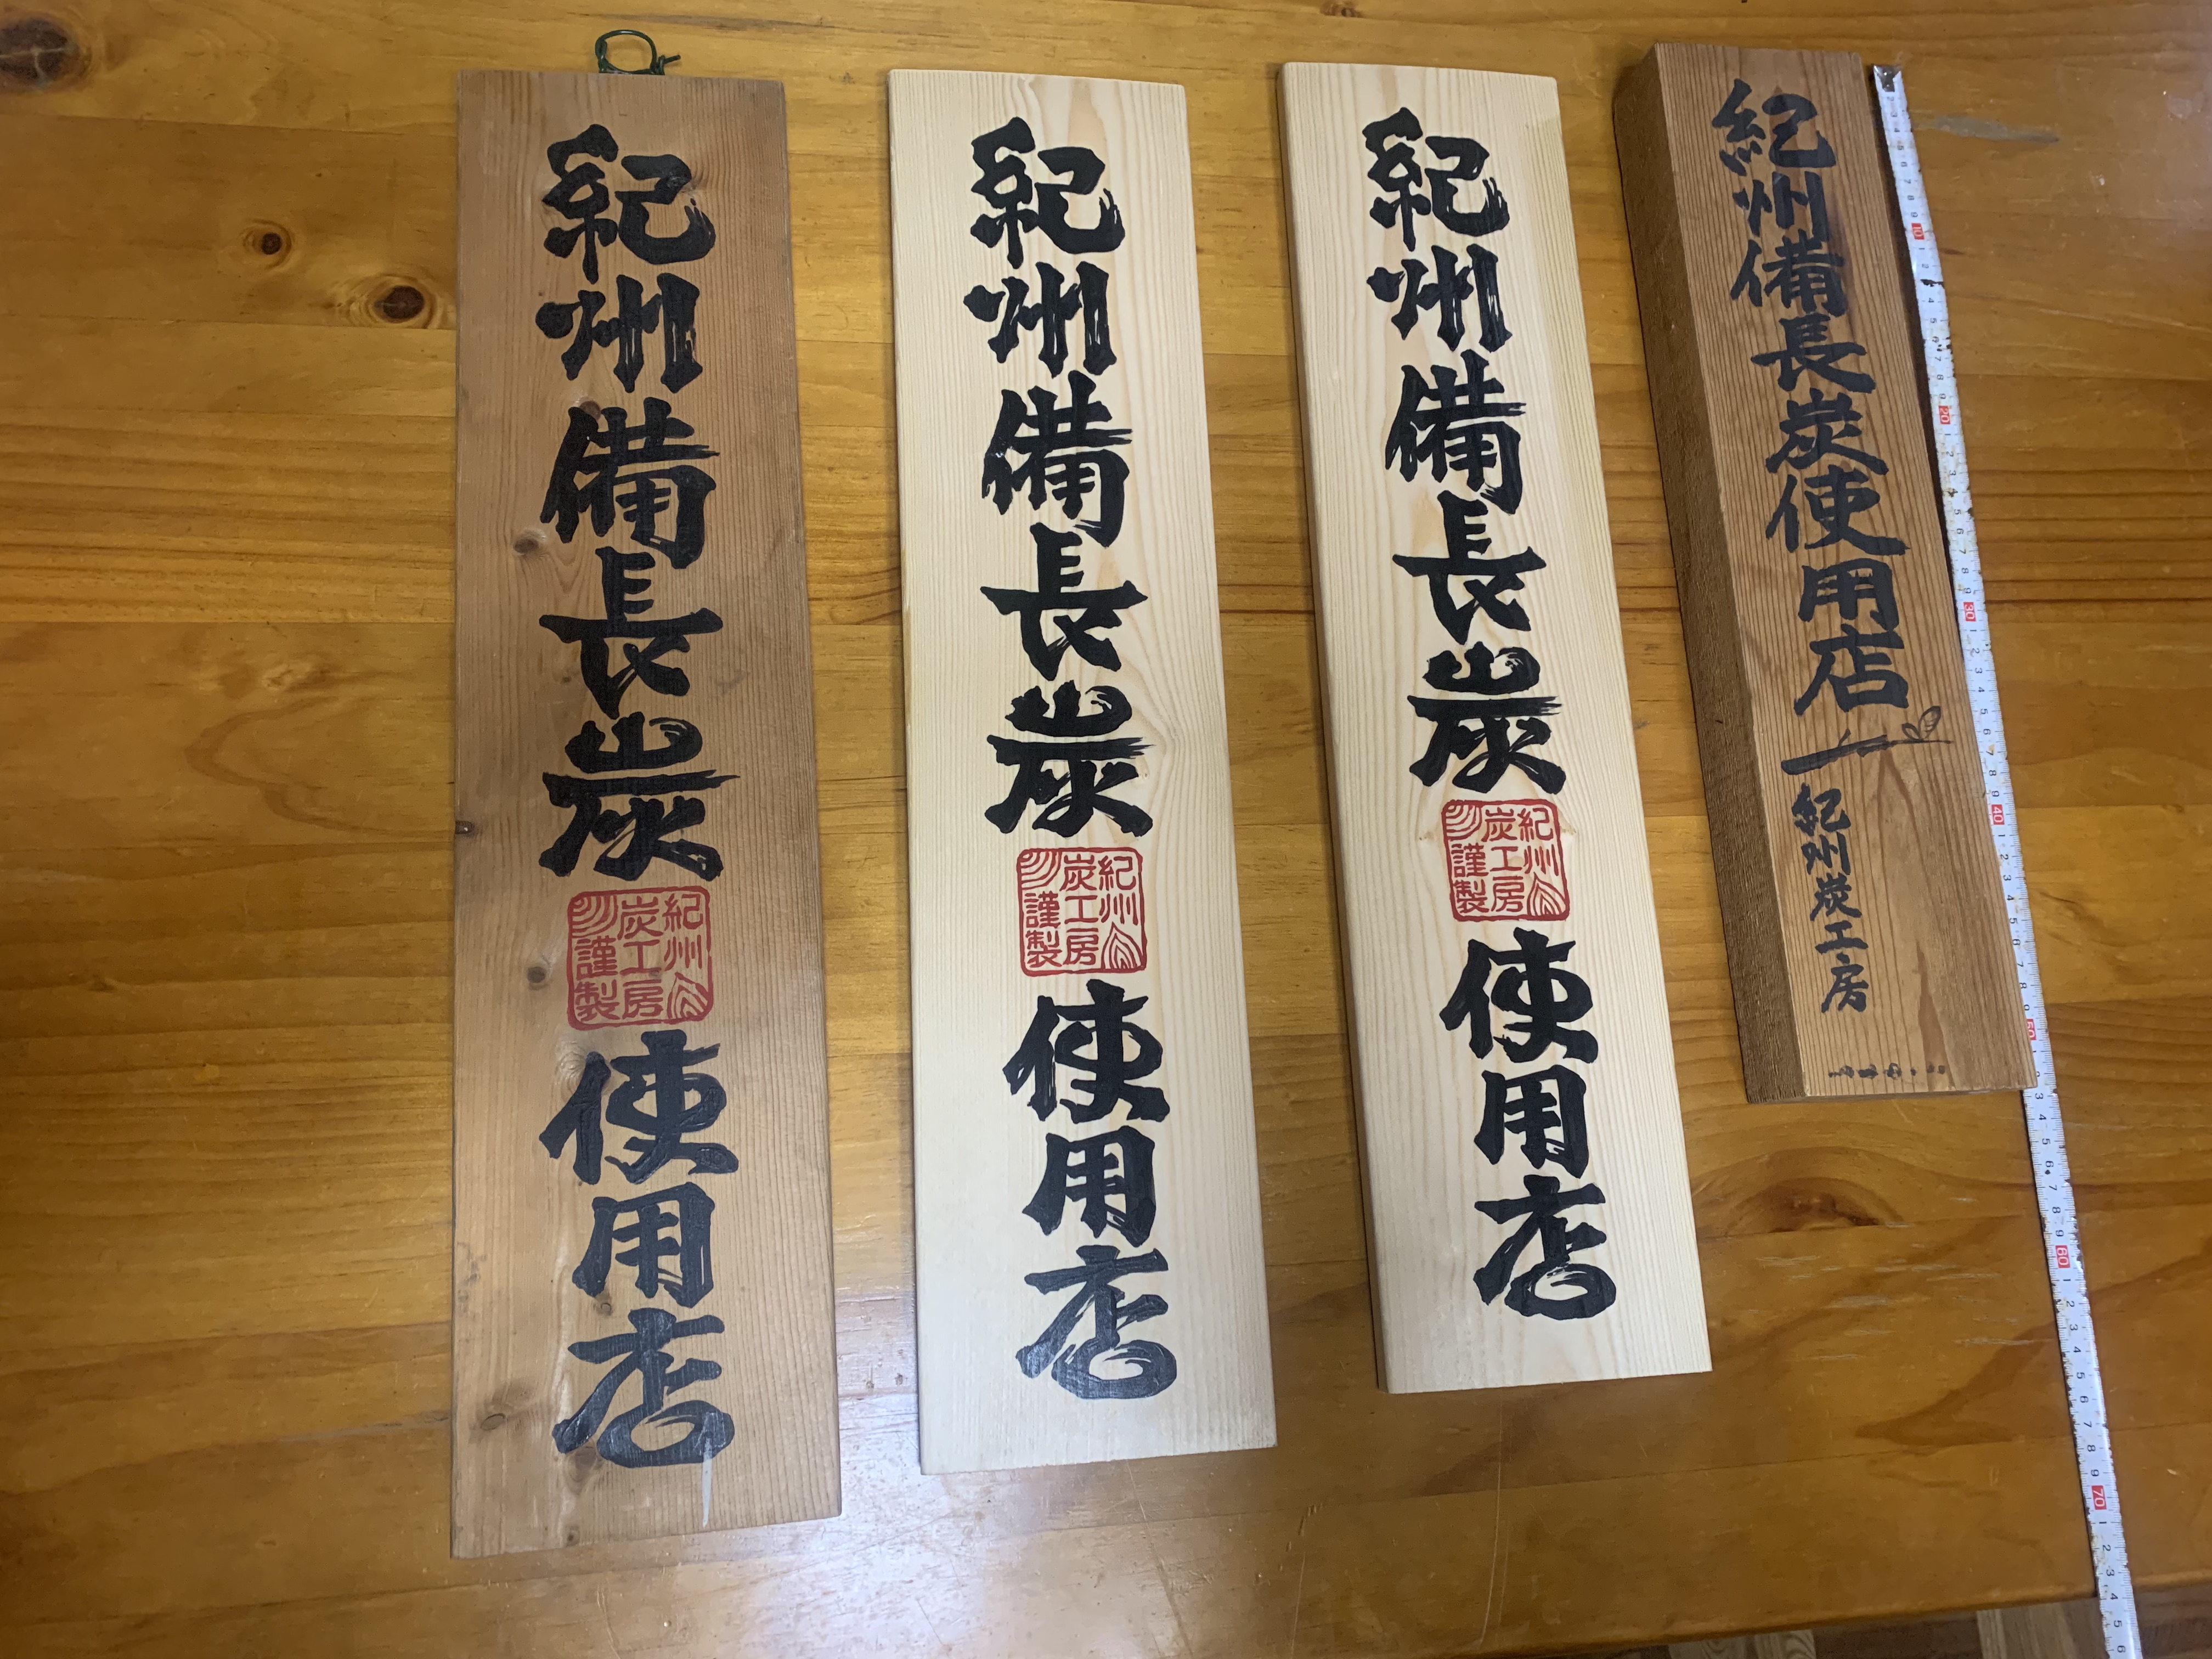 紀州備長炭
紀州
炭工房
謹製
使用店
紀州備長炭
紀州
炭工房
謹製
使用店
紀州備長炭
紀州
炭工房
謹製
使用店
紀州備長炭使用店
紀州炭工房